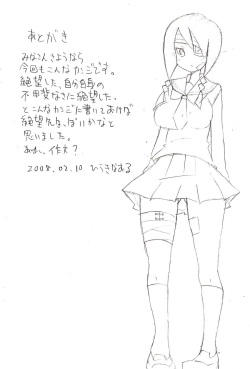 あとがき
みなさんさようなら
今回もこんなカンジです。
絶望した、自分自身の
不甲斐なさに絶望した。
とこんなカンジに書いとおけば
絶望先生っぽいかなと
思いました。
あれ、作文？
2008.02.10 ひうきなおる